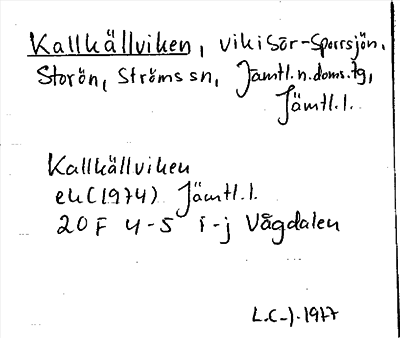 Kallkällviken, vik i Sör-Sporrsjön,
Storön, Ströms sn, Jämtl. n. doms. tg,
Jämtl. l.
Kallkällviken
ek (1974) Jämtl. l.
20 F 4-5 i-j Vågdalen
L.C-). 1977